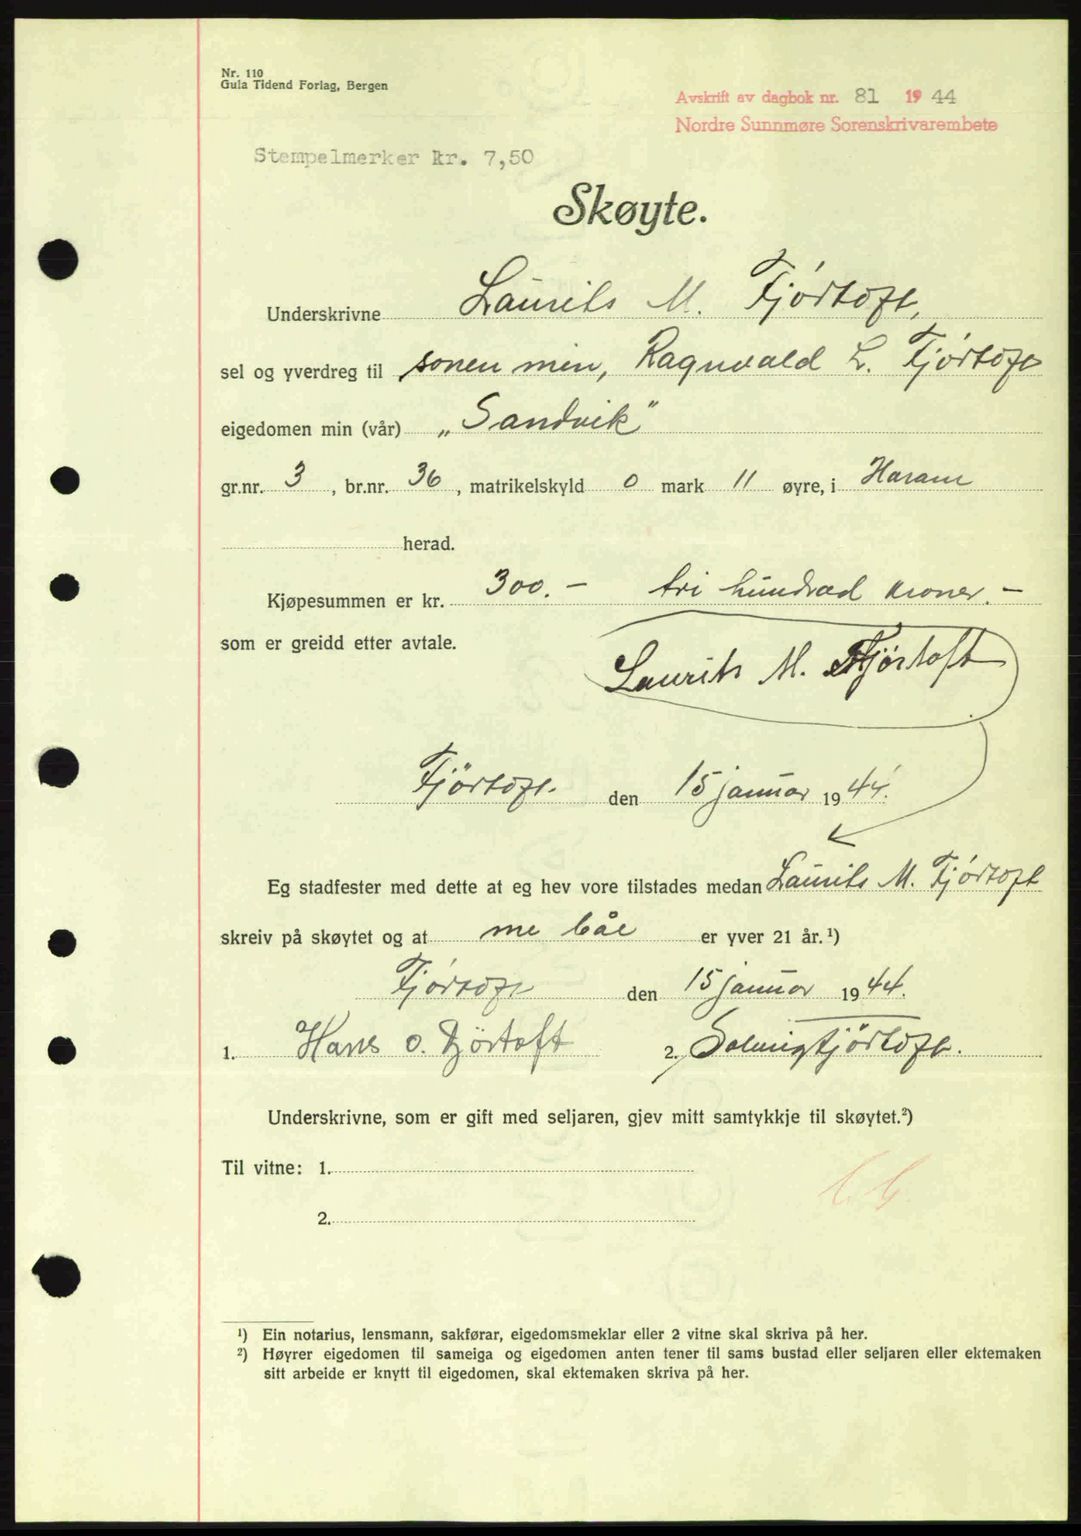 Nr. 110
Gula Tidend Forlag, Bergen
Avskrift av dagbok nr. 81 1944
Nordre Sunnmøre Sorenskrivarembete
Stempelmerker kr. 7,50
Skøyte.
Underskrivne Laurits M. Fjörtoft,
sel og yverdreg til sonen min, Ragnvald L. Fjörtoft
eigedomen min (vår) „Sandvik"
gr.nr. 3, br.nr. 36, matrikelskyld 0 mark 11 øyre, i Haram
herad.
Kjøpesummen er kr. 300.- tri hundrad kroner.-
som er greidd etter avtale.
Laurits M. Fjørtoft
Fjörtoft. den 15 januar 1944.
Eg stadfester med dette at eg hev vore tilstades medan Laurits M. Fjörtoft
skreiv på skøytet og at me båe er yver 21 år.¹)
Fjörtoft den 15 januar 1944.
1. Hans O. Fjörtoft 2. Solveig Fjörtoft.
Underskrivne, som er gift med seljaren, gjev mitt samtykkje til skøytet.²)
Til vitne: 1.
2.
¹) Ein notarius, lensmann, sakførar, eigedomsmeklar eller 2 vitne skal skriva på her.
²) Høyrer eigedomen til sameiga og eigedomen anten tener til sams bustad eller seljaren eller ektemaken
sitt arbeide er knytt til eigedomen, skal ektemaken skriva på her.